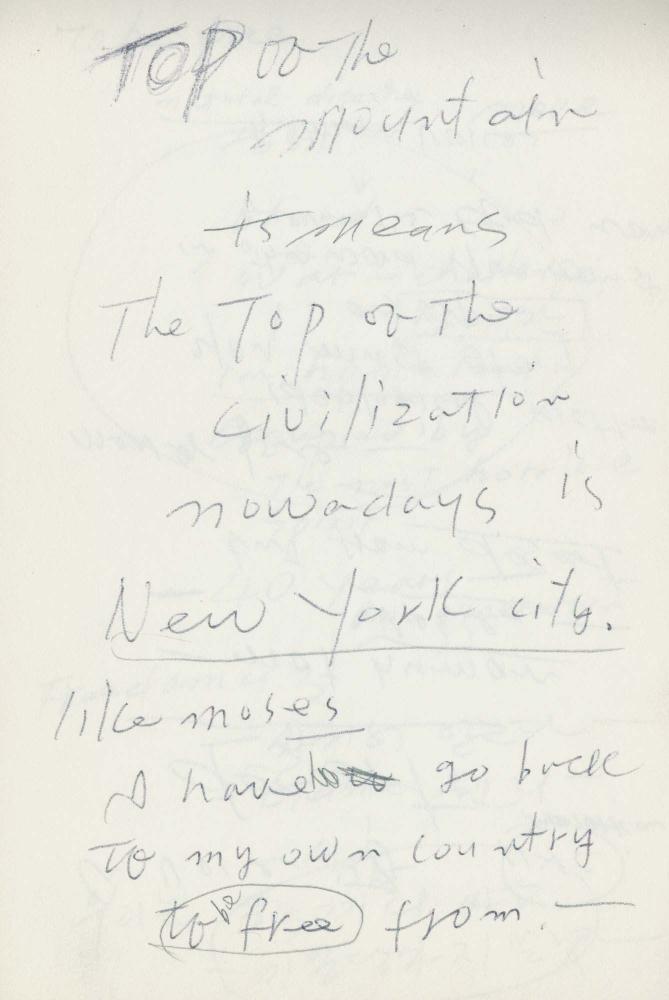 TOP of the
mountain
ts means
The Top of The
civilization
nowadays is
New York city.
like moses
I have go back
To my own country
to be free from. —